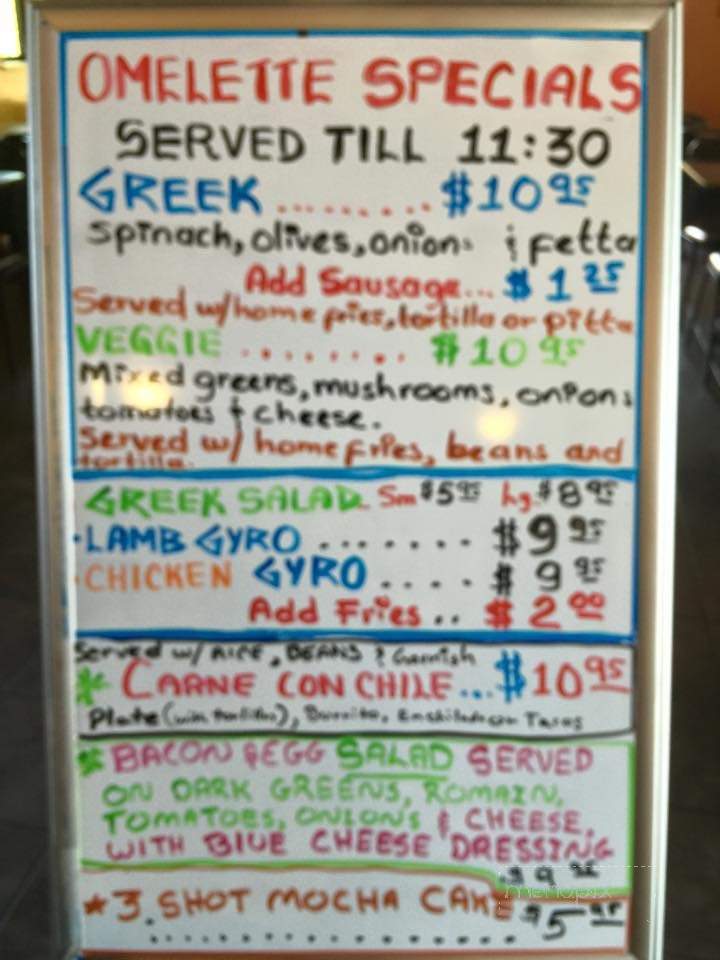 OMELETTE SPECIALS
SERVED TILL 11:30
GREEK ........ $10 95
Spinach, olives, onions & fetta
Add Sausage... $1 25
Served w/home fries, tortilla or pitta
VEGGIE ........ $10 95
Mixed greens, mushrooms, onions
tomatoes & cheese.
Served w/ home fries, beans and
tortilla.
GREEK SALAD. Sm $5 95 lg. $8 95
·LAMB GYRO ....... $9 95
·CHICKEN GYRO .... $9 95
Add Fries .. $2 00
Served w/ RICE, BEANS & Garnish
* CARNE CON CHILE... $10 95
Plate (with tortillas), Burrito, Enchiladas or Tacos
* BACON & EGG SALAD SERVED
ON DARK GREENS, ROMAIN,
TOMATOES, ONIONS & CHEESE,
WITH BLUE CHEESE DRESSING
$9 95
menupix
* 3. SHOT MOCHA CAKE $5 95
..............